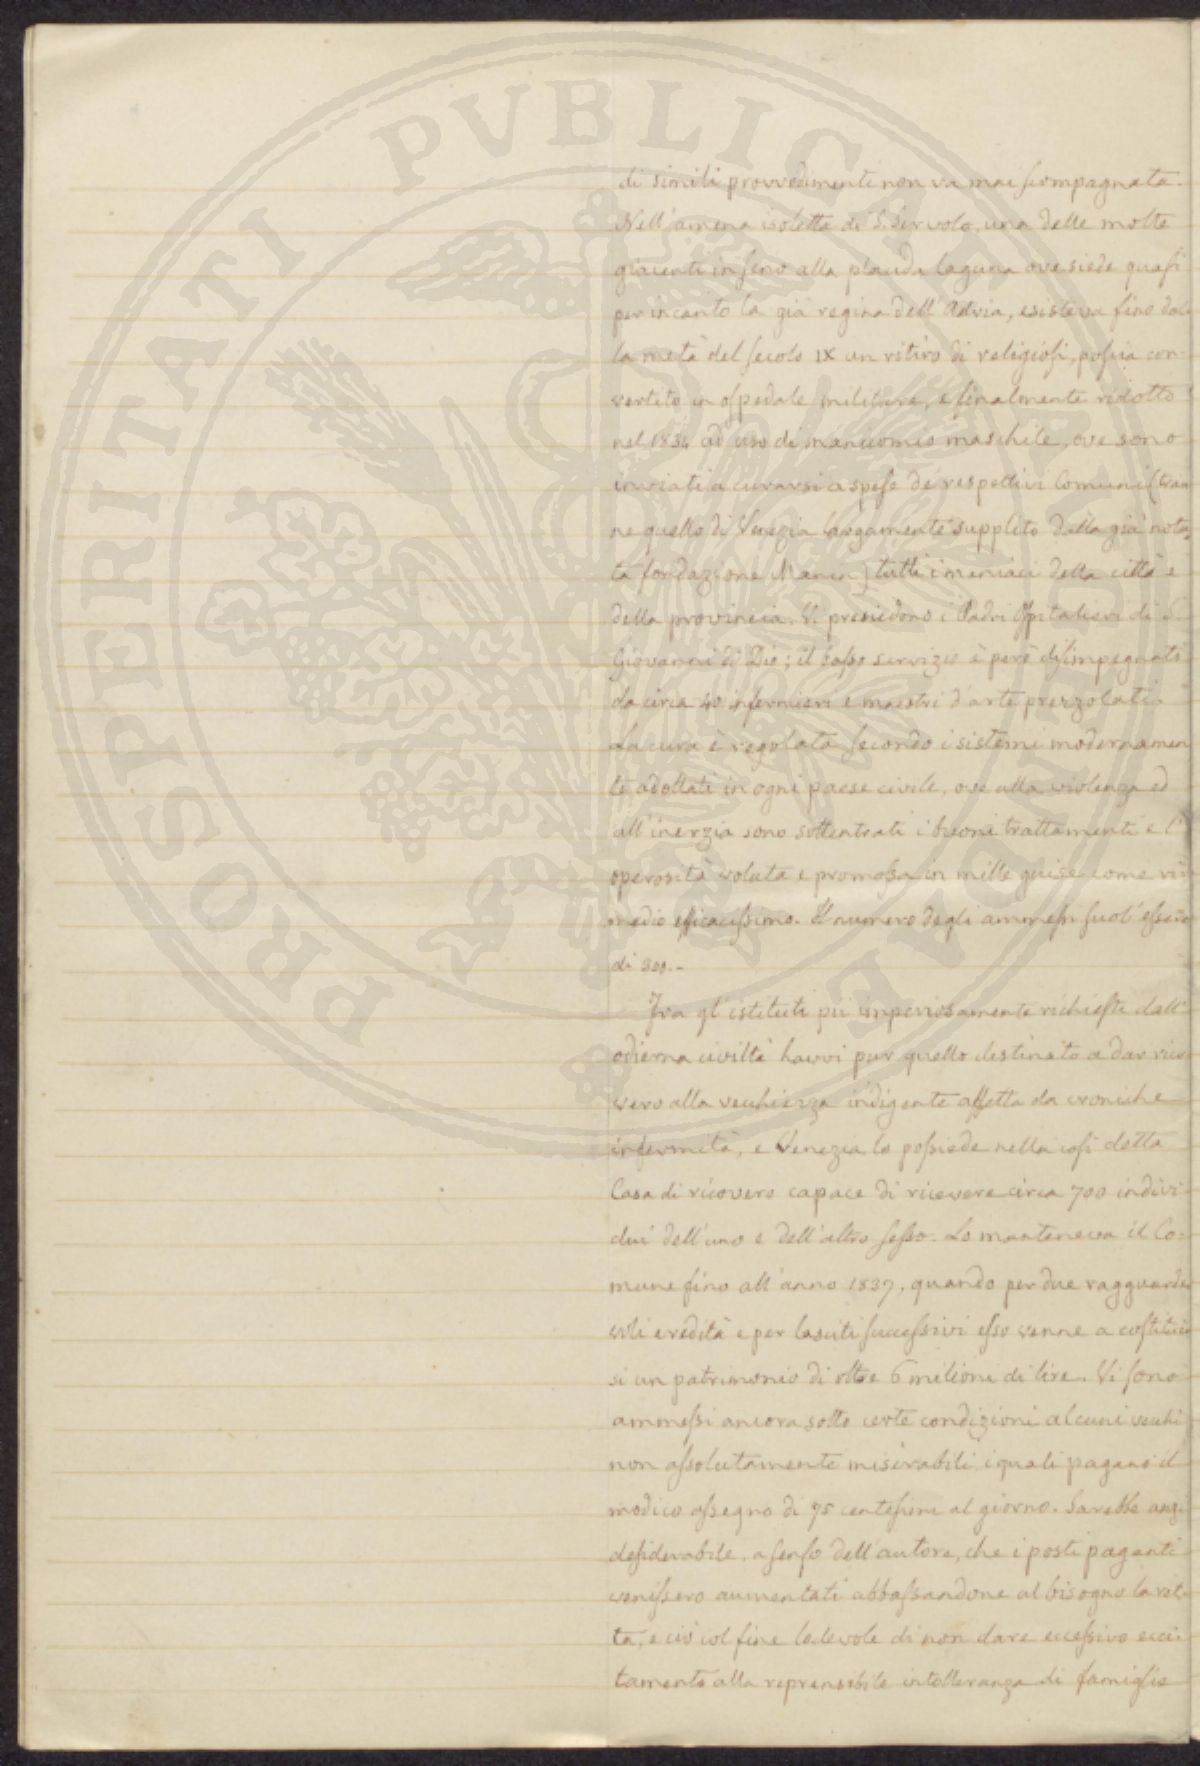 PROSPERITATI PVBLICAE AVGENDAE
di simili provvedimenti non va mai scompagnata.
Nell'amena isoletta di S. Servolo, una delle molte
giacenti in seno alla placida laguna ove siede quasi
per incanto la già regina dell'Adria, esisteva fino dal-
la metà del secolo IX un ritiro di religiosi, poscia con-
vertito in ospedale militare, e finalmente ridotto
nel 1834 ad uso di manicomio maschile, ove sono
inviati a curarsi a spese de' respettivi Comuni (tran
ne quello di Venezia largamente supplito dalla già nota
ta fondazione Manin) tutti i maniaci della città e
della provincia. Vi presiedono i Padri Ospitalieri di S.
Giovanni di Dio; il basso servizio è però disimpegnato
da circa 40 infermieri e maestri d'arte prezzolati.
La cura è regolata secondo i sistemi modernamen
te adottati in ogni paese civile, ove alla violenza ed
all'inerzia sono sottentrati i buoni trattamenti e l'
operosità voluta e promossa in mille guise come ri
medio efficacissimo. Il numero degli ammessi suol'essere
di 300.-
Fra gl'istituti più imperiosamente richiesti dall'
odierna civiltà havvi pur quello destinato a dar rico
vero alla vecchiezza indigente affetta da croniche
infermità, e Venezia lo possiede nella così detta
Casa di ricovero capace di ricevere circa 700 indivi-
dui dell'uno e dell'altro sesso. Lo manteneva il Co-
mune fino all'anno 1837, quando per due ragguarde
voli eredità e per lasciti successivi esso venne a costituir
si un patrimonio di oltre 6 milioni di lire. Vi sono
ammessi ancora sotto certe condizioni alcuni vecchi
non assolutamente miserabili, i quali pagano il
modico assegno di 75 centesimi al giorno. Sarebbe anzi
desiderabile, a senso dell'autore, che i posti paganti
venissero aumentati abbassandone al bisogno la ret-
ta, e ciò col fine lodevole di non dare eccessivo ecci-
tamento alla reprensibile intolleranza di famiglie